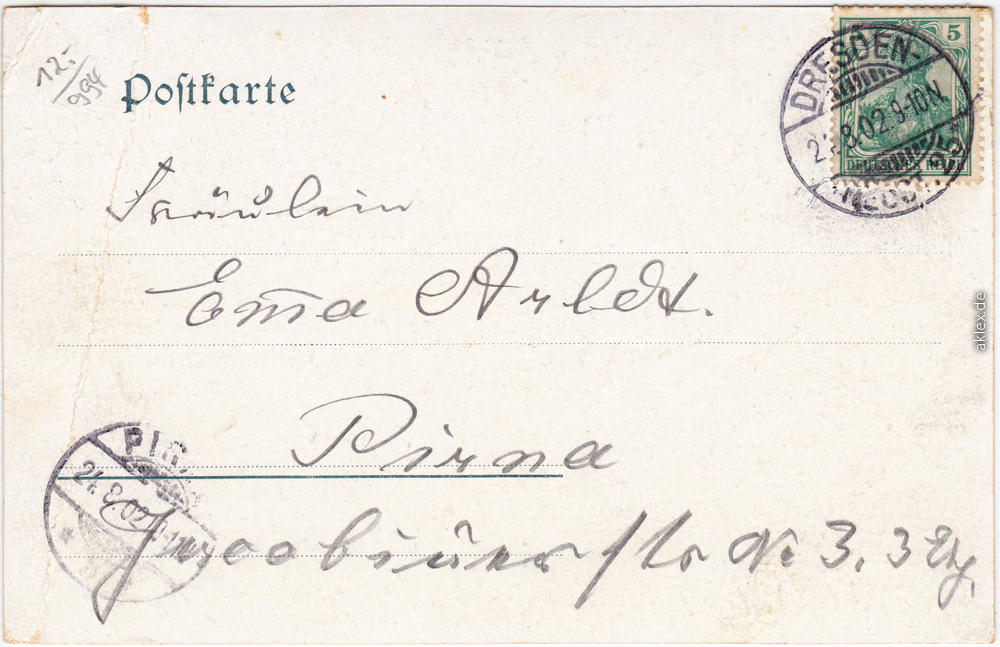 12.-
994
Postkarte
5
DRESDEN-
8.02.9-10N.
DEUTSCHES REICH
Fräulein
Em̅a Arldt.
Pirna
PIR
24.8.02
Jacobäerstr № 3. 3 Etg.
aklex.de